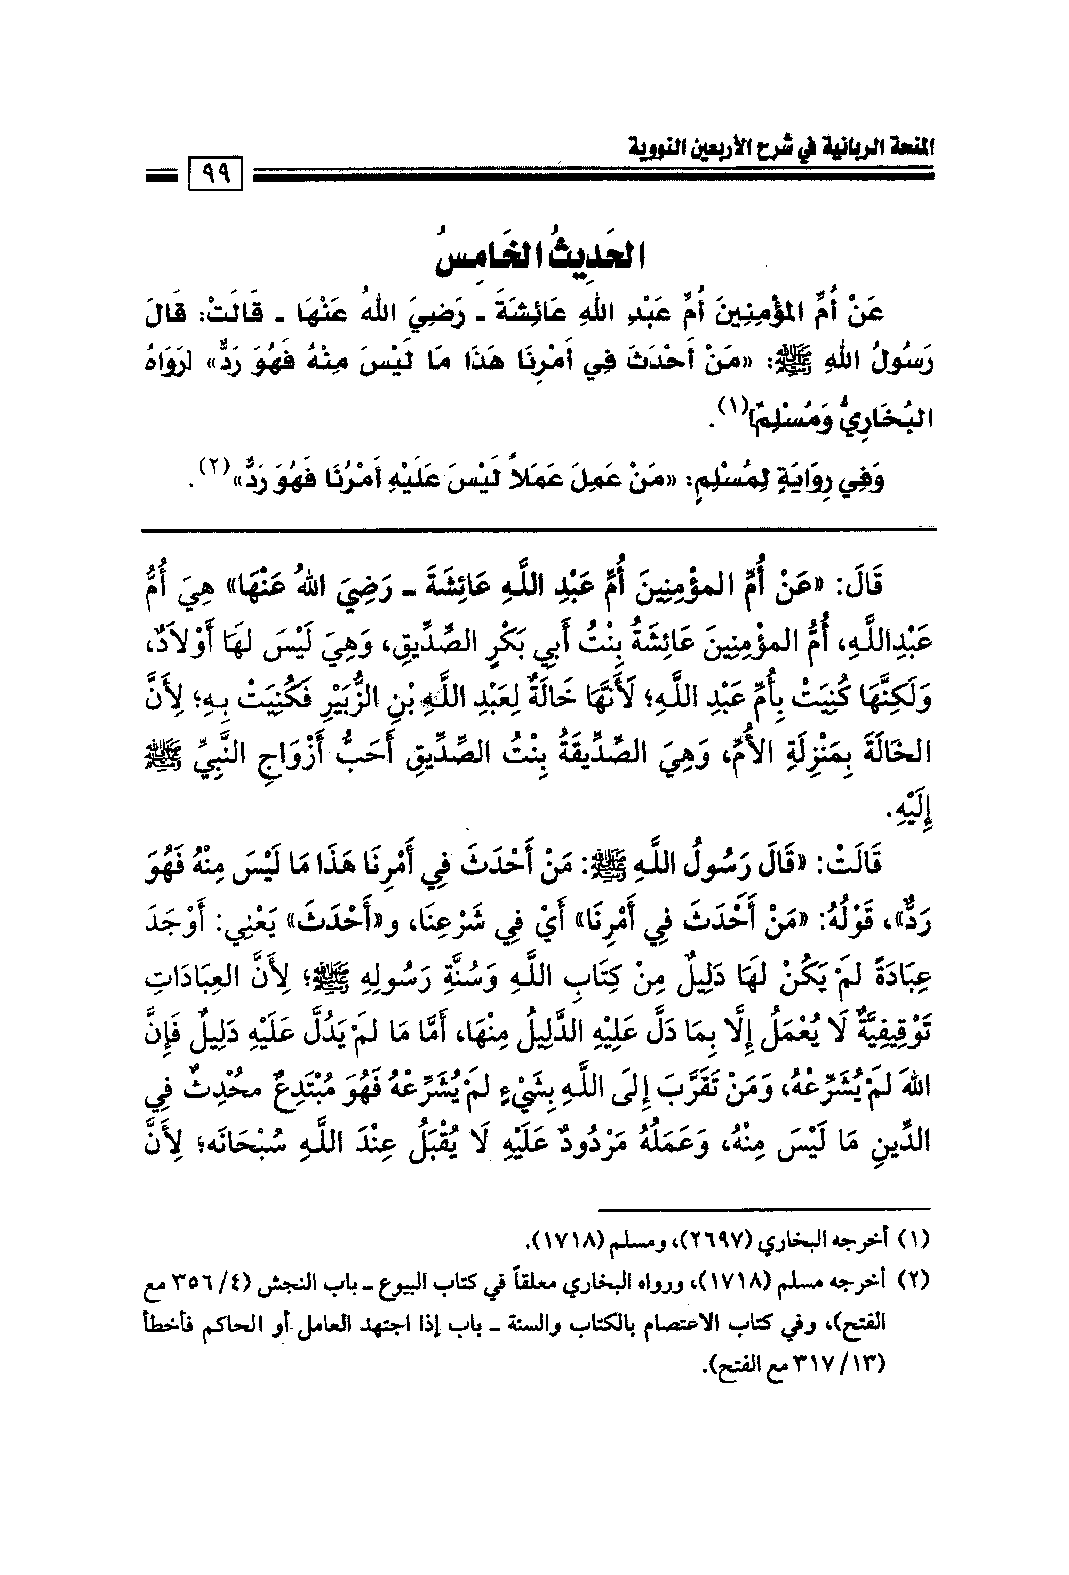 المنحة الربانية في شرح الأربعين النووية
٩٩
الحَدِيثُ الخَامِسُ
عَنْ أُمِّ المُؤْمِنِينَ أُمِّ عَبْدِ اللهِ عَائِشَةَ ـ رَضِيَ اللهُ عَنْهَا ـ قَالَتْ: قَالَ
رَسُولُ اللهِ ﷺ: «مَنْ أَحْدَثَ فِي أَمْرِنَا هَذَا مَا لَيْسَ مِنْهُ فَهُوَ رَدٌّ» [رَوَاهُ
البُخَارِيُّ وَمُسْلِمٌ](١).
وَفِي رِوَايَةٍ لِمُسْلِمٍ: «مَنْ عَمِلَ عَمَلاً لَيْسَ عَلَيْهِ أَمْرُنَا فَهُوَ رَدٌّ»(٢).
قَالَ: «عَنْ أُمِّ المؤْمِنِينَ أُمِّ عَبْدِ اللَّهِ عَائِشَةَ ـ رَضِيَ اللهُ عَنْهَا» هِيَ أُمُّ
عَبْدِاللَّهِ، أُمُّ المؤْمِنِينَ عَائِشَةُ بِنْتُ أَبِي بَكْرٍ الصِّدِّيقِ، وَهِيَ لَيْسَ لهَا أَوْلاَدٌ،
وَلَكِنَّهَا كُنِيَتْ بِأُمِّ عَبْدِ اللَّهِ؛ لَأَنَّهَا خَالَةٌ لِعَبْدِ اللَّهِ بْنِ الزُّبَيْرِ فَكُنِيَتْ بِهِ؛ لِأَنَّ
الخَالَةَ بِمَنْزِلَةِ الأُمِّ، وَهِيَ الصِّدِّيقَةُ بِنْتُ الصِّدِّيقِ أَحَبُّ أَزْوَاجِ النَّبِيِّ ﷺ
إِلَيْهِ.
قَالَتْ: «قَالَ رَسُولُ اللَّهِ ﷺ: مَنْ أَحْدَثَ فِي أَمْرِنَا هَذَا مَا لَيْسَ مِنْهُ فَهُوَ
رَدٌّ»، قَوْلُهُ: «مَنْ أَحْدَثَ فِي أَمْرِنَا» أَيْ فِي شَرْعِنَا، و«أَحْدَثَ» يَعْنِي: أَوْجَدَ
عِبَادَةً لَمْ يَكُنْ لهَا دَلِيلٌ مِنْ كِتَابِ اللَّهِ وَسُنَّةِ رَسُولِهِ ﷺ؛ لِأَنَّ العِبَادَاتِ
تَوْقِيفِيَّةٌ لَا يُعْمَلُ إِلَّا بِمَا دَلَّ عَلَيْهِ الدَّلِيلُ مِنْهَا، أَمَّا مَا لَمْ يَدُلَّ عَلَيْهِ دَلِيلٌ فَإِنَّ
اللهَ لَمْ يُشَرِّعْهُ، وَمَنْ تَقَرَّبَ إِلَى اللَّهِ بِشَيْءٍ لَمْ يُشَرِّعْهُ فَهُوَ مُبْتَدِعٌ محُدِثٌ فِي
الدِّينِ مَا لَيْسَ مِنْهُ، وَعَمَلُهُ مَرْدُودٌ عَلَيْهِ لَا يُقْبَلُ عِنْدَ اللَّهِ سُبْحَانَه؛ لِأَنَّ
(١) أخرجه البخاري (٢٦٩٧)، ومسلم (١٧١٨).
(٢) أخرجه مسلم (١٧١٨)، ورواه البخاري معلقاً في كتاب البيوع ـ باب النجش (٤/ ٣٥٦ مع
الفتح)، وفي كتاب الاعتصام بالكتاب والسنة ـ باب إذا اجتهد العامل أو الحاكم فأخطأ
(١٣/ ٣١٧ مع الفتح).